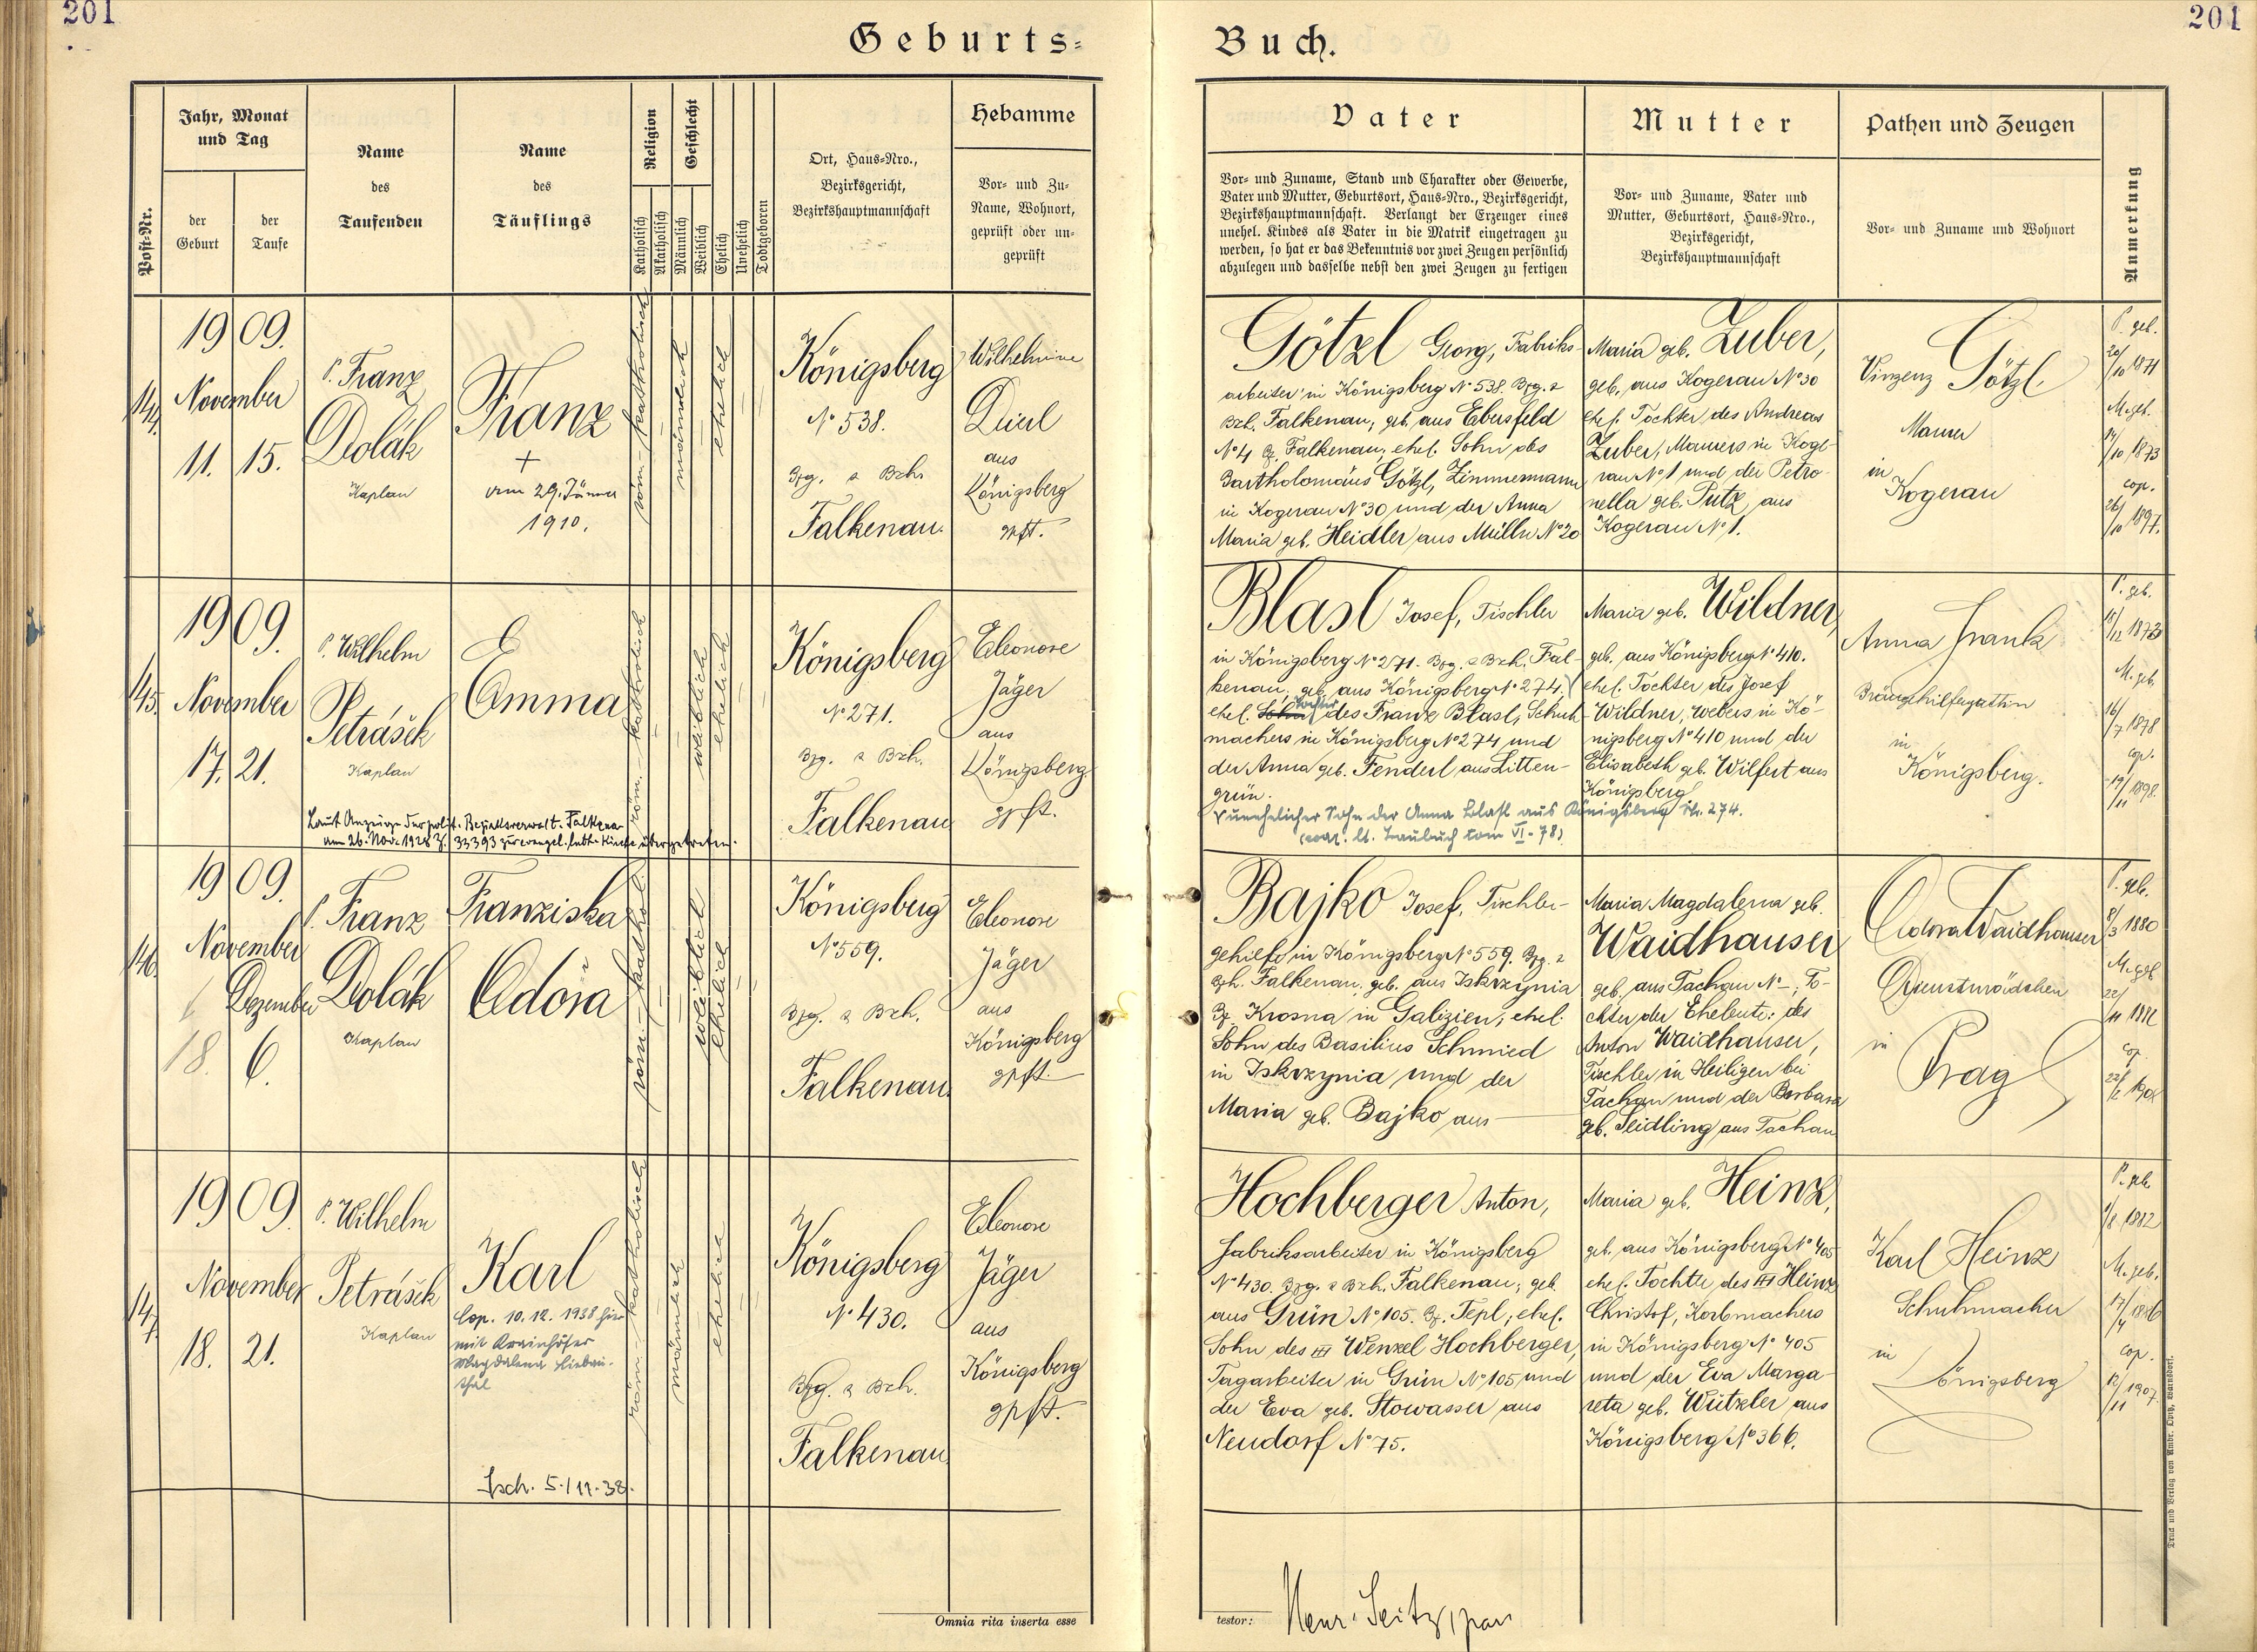 201
201
Geburts-
Buch.
Post-Nr.
Jahr, Monat
und Tag
der
Geburt
der
Taufe
Name
des
Taufenden
Name
des
Täuflings
Religion
Katholisch
Akatholisch
Geschlecht
Männlich
Weiblich
Ehelich
Unehelich
Todtgeboren
Ort, Haus-Nro.,
Bezirksgericht,
Bezirkshauptmannschaft
Hebamme
Vor- und Zu-
Name, Wohnort,
geprüft oder un-
geprüft
Vater
Vor- und Zuname, Stand und Charakter oder Gewerbe,
Vater und Mutter, Geburtsort, Haus-Nro., Bezirksgericht,
Bezirkshauptmannschaft. Verlangt der Erzeuger eines
unehel. Kindes als Vater in die Matrik eingetragen zu
werden, so hat er das Bekenntnis vor zwei Zeugen persönlich
abzulegen und dasselbe nebst den zwei Zeugen zu fertigen
Mutter
Vor- und Zuname, Vater und
Mutter, Geburtsort, Haus-Nro.,
Bezirksgericht,
Bezirkshauptmannschaft
Pathen und Zeugen
Vor- und Zuname und Wohnort
Anmerkung
144.
1909.
November
11. 15.
P. Franz
Dolák
Kaplan
Franz
+
am 29. Jänner
1910.
röm.-katholisch
männlich
ehelich
Königsberg
No 538.
Bzg. & Bzh.
Falkenau.
Wilhelmine
Dierl
aus
Königsberg
gpft.
Götzl Georg, Fabriks-
arbeiter in Königsberg No 538. Bzg. &
Bzh. Falkenau, geb. aus Ebersfeld
No 4 Bz. Falkenau, ehel. Sohn des
Bartholomäus Götzl, Zimmermann
in Kogerau No 30 und der Anna
Maria geb. Heidler aus Mülln No 20
Maria geb. Zuber,
geb. aus Kogerau No 30
ehel. Tochter des Andreas
Zuber, Maurers in Koge-
rau No 1 und der Petro-
nella geb. Putz aus
Kogerau No 1.
Vinzenz Götzl
Maurer
in
Kogerau
P. geb.
20/10 1871
M. geb.
14/10 1873
cop.
26/10 1897.
145.
1909.
November
17. 21.
P. Wilhelm
Petrášek
Kaplan
Emma
röm.-katholisch
weiblich
ehelich
Laut Anzeige der polit. Bezirksverwalt. Falkenau
am 26. Nov. 1928 Z. 33393 zur evangel. luth. Kirche übergetreten.
Königsberg
No 271.
Bzg. & Bzh.
Falkenau
Eleonore
Jäger
aus
Königsberg
gpft.
Blasl Josef, Tischler
in Königsberg No 271. Bzg. & Bzh. Fal-
kenau, geb. aus Königsberg No 274,
ehel. Sohn des Franz Blasl, Schuh-
machers in Königsberg No 274 und
der Anna geb. Fenderl aus Litten-
grün.
unehelicher Sohn der Anna Blasl aus Königsberg Nr. 274.
Maria geb. Wildner,
geb. aus Königsberg No 410.
ehel. Tochter des Josef
Wildner, Webers in Kö-
nigsberg No 410 und der
Elisabeth geb. Wilfert aus
Königsberg
Anna Frank
Bräugehilfengattin
in
Königsberg.
P. geb.
M. geb.
16/7 1878
cop.
19/11 1898.
146.
1909.
November
Dezember
18. 6.
P. Franz
Dolák
Kaplan
Franziska
Odora
röm.-katholisch
weiblich
ehelich
Königsberg
No 559.
Bzg. & Bzh.
Falkenau.
Eleonore
Jäger
aus
Königsberg
gpft.
Bajko Josef, Tischler-
gehilfe in Königsberg No 559. Bzg. &
Bzh. Falkenau, geb. aus Iskrzynia
Bz. Krosna in Galizien, ehel.
Sohn des Basilius Schmied
in Iskrzynia und der
Maria geb. Bajko aus —
Maria Magdalena geb.
Waidhauser
geb. aus Tachau No –, To-
chter der Eheleute: des
Anton Waidhauser,
Tischler in Heiligen bei
Tachau und der Barbara
geb. Seidling aus Tachau
Odora Waidhauser
Dienstmädchen
in
Prag
P. geb.
8/3 1880
M. geb.
cop.
147.
1909.
November
18. 21.
P. Wilhelm
Petrášek
Kaplan
Karl
Cop. 10.12. 1938 hier
mit Krainhöfer
Magdalena Liebau-
thal
Tsch. 5./11.38.
röm.-katholisch
männlich
ehelich
Königsberg
No 430.
Bzg. & Bzh.
Falkenau.
Eleonore
Jäger
aus
Königsberg
gpft.
Hochberger Anton,
Fabriksarbeiter in Königsberg
No 430. Bzg. & Bzh. Falkenau, geb.
aus Grün No 105. Bz. Tepl, ehel.
Sohn des III Wenzel Hochberger,
Tagarbeiter in Grün No 105 und
der Eva geb. Stowasser aus
Neudorf No 75.
Maria geb. Heinz,
geb. aus Königsberg No 405
ehel. Tochter des III Heinz
Christof, Korbmachers
in Königsberg No 405
und der Eva Marga-
reta geb. Wützler aus
Königsberg No 366.
Karl Heinz
Schuhmacher
in
Königsberg
P. geb.
1/8 1882
M. geb.
17/4 1886
cop.
12/11 1907.
Omnia rita inserta esse
testor:
Druck und Verlag von Ambr. Opitz, Warnsdorf.